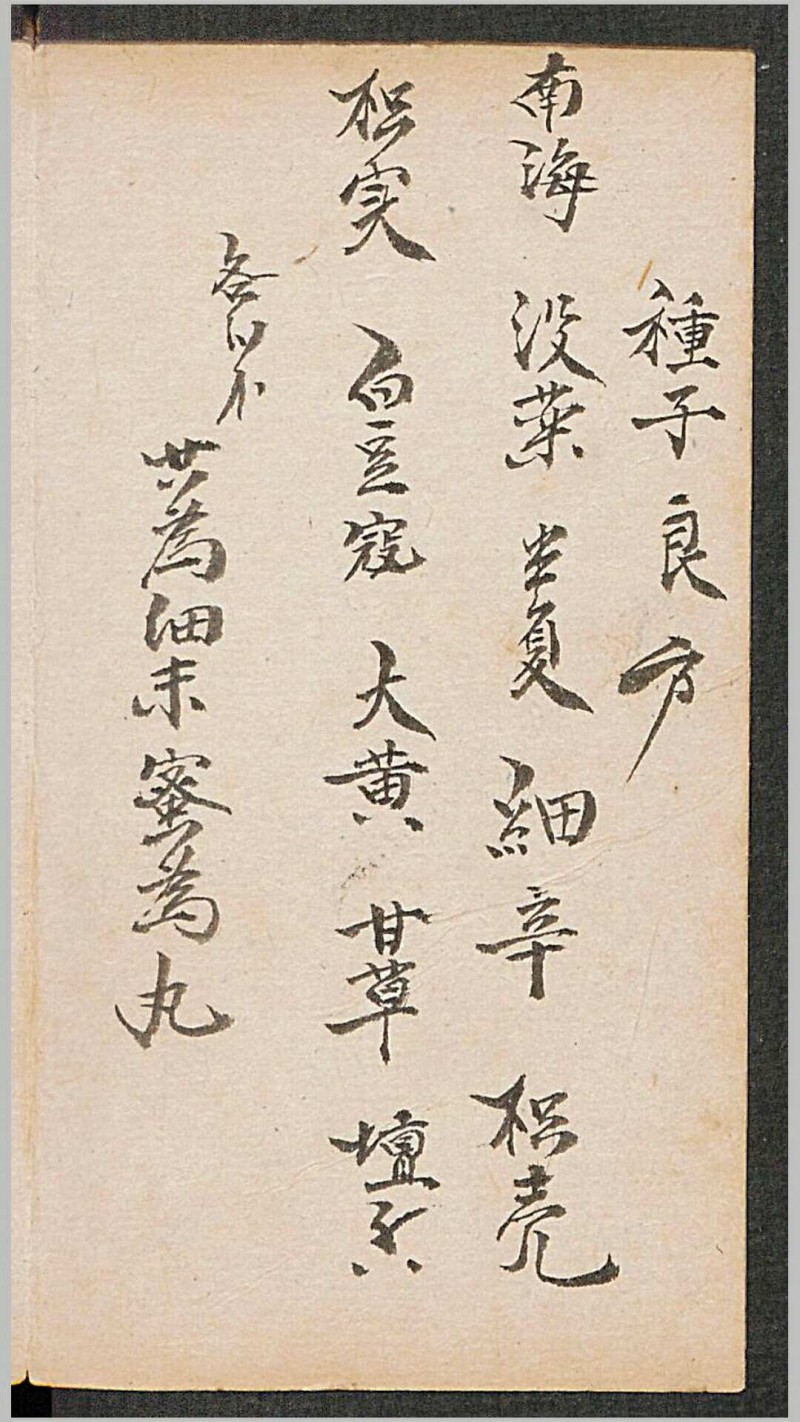 種子良方
南海 没薬 半夏 細辛 枳壳
枳実 白豆寇 大黄 甘草 壇香
各
共為細末蜜為丸